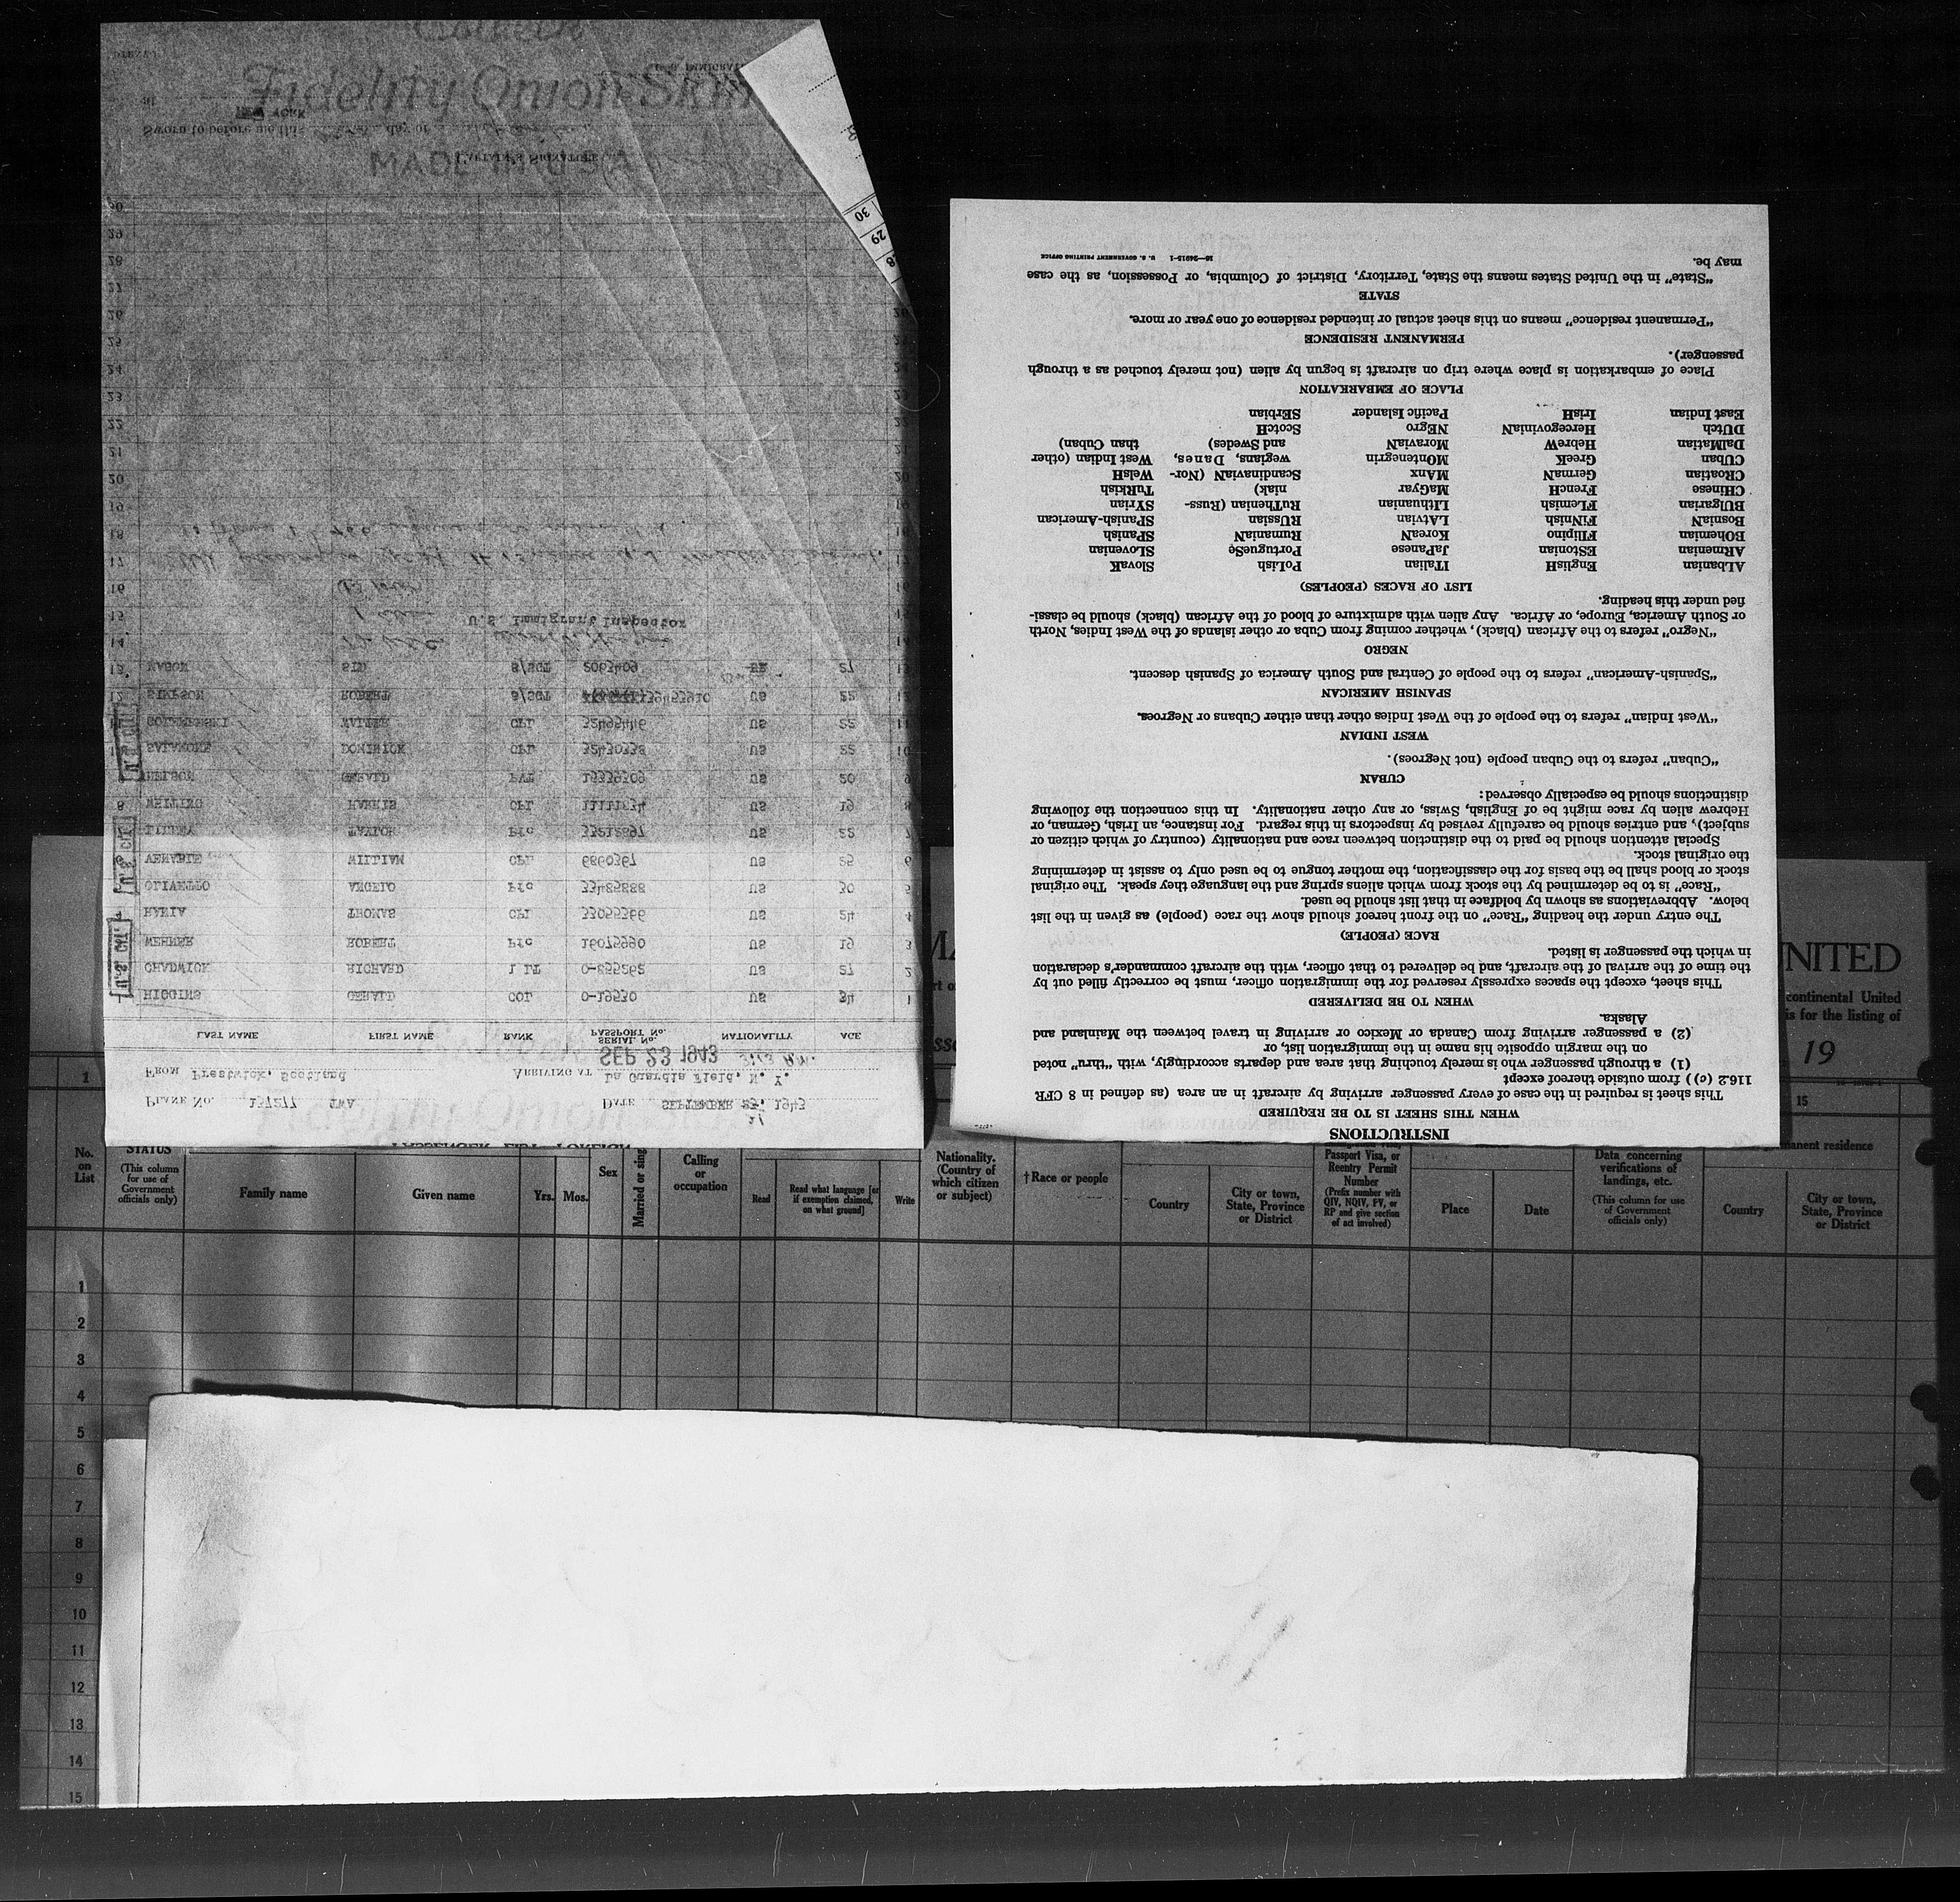 PASSENGER LIST FOREIGN
PLANE No. 137277 TWA DATE SEPTEMBER 23, 1943
FROM Prestwick, Scotland ARRIVING AT La Guardia Field, N. Y.
SEP 23 1943
LAST NAME FIRST NAME RANK PASSPORT No. SERIAL No. NATIONALITY AGE
HIGGINS GERALD COL 0-19530 US 34 1
CHADWICK RICHARD 1 LT 0-855262 US 27 2
WEHNER ROBERT Pfc 16075990 US 19 3
THOMAS CPL 33055366 US 24 4
OLIVETTO ANGELO Pfc 33485888 US 30 5
VENABLE WILLIAM CPL 6860367 US 25 6
TAYLOR Pfc 33212897 US 22 7
HARRIS CPL US 19 8
NELSON GERALD PVT 19 339309 US 20 9
SALAMONE DOMINICK CPL 32430338 US 22 10
WALTER CPL 32495446 US 22 11
SIMPSON ROBERT S/SGT 39453910 US 22 12
S/SGT 2063409 27 13
14
15
U.S. Immigrant Inspector
16
17
18
19
20
21
22
23
24
25
26
27
28
29
30
CAPTAIN'S SIGNATURE
MADE IN U S A
Sworn to before me this day of
NEW YORK
at
Fidelity Onion Skin
U. S. IMMIGRA
29
30
INSTRUCTIONS
WHEN THIS SHEET IS TO BE REQUIRED
This sheet is required in the case of every passenger arriving by aircraft in an area (as defined in 8 CFR
116.2 (c)) from outside thereof except
(1) a through passenger who is merely touching that area and departs accordingly, with "thru" noted
on the margin opposite his name in the immigration list, or
(2) a passenger arriving from Canada or Mexico or arriving in travel between the Mainland and
Alaska.
WHEN TO BE DELIVERED
This sheet, except the spaces expressly reserved for the immigration officer, must be correctly filled out by
the time of the arrival of the aircraft, and be delivered to that officer, with the aircraft commander's declaration
in which the passenger is listed.
RACE (PEOPLE)
The entry under the heading "Race" on the front hereof should show the race (people) as given in the list
below. Abbreviations as shown by boldface in that list should be used.
"Race" is to be determined by the stock from which aliens spring and the language they speak. The original
stock or blood shall be the basis for the classification, the mother tongue to be used only to assist in determining
the original stock.
Special attention should be paid to the distinction between race and nationality (country of which citizen or
subject), and entries should be carefully revised by inspectors in this regard. For instance, an Irish, German, or
Hebrew alien by race might be of English, Swiss, or any other nationality. In this connection the following
distinctions should be especially observed:
CUBAN
"Cuban" refers to the Cuban people (not Negroes).
WEST INDIAN
"West Indian" refers to the people of the West Indies other than either Cubans or Negroes.
SPANISH AMERICAN
"Spanish-American" refers to the people of Central and South America of Spanish descent.
NEGRO
"Negro" refers to the African (black), whether coming from Cuba or other islands of the West Indies, North
or South America, Europe, or Africa. Any alien with admixture of blood of the African (black) should be classi-
fied under this heading.
LIST OF RACES (PEOPLES)
ALbanian EnglisH ITalian PoLish SlovaK
ARmenian EStonian JaPanese PortugueSe SLovenian
BOhemian FIlipino KoreaN RumaniaN SPanish
BosniaN FiNnish LAtvian RUssian SPanisH-American
BUlgarian FLemish LIthuanian RuThenian (Russ- SYrian
CHinese FrencH MaGyar niak) TuRkish
CRoatian GermaN MAnx ScandinaviaN (Nor- WelsH
CUban GreeK MOntenegrin wegians, Danes, West Indian (other
DalMatian HebreW MoraviaN and Swedes) than Cuban)
DUtch HercegoviniaN NEgro ScotcH
East Indian IrisH Pacific Islander SErbian
PLACE OF EMBARKATION
Place of embarkation is place where trip on aircraft is begun by alien (not merely touched as a through
passenger).
PERMANENT RESIDENCE
"Permanent residence" means on this sheet actual or intended residence of one year or more.
STATE
"State" in the United States means the State, Territory, District of Columbia, or Possession, as the case
may be.
16—24915-1 U. S. GOVERNMENT PRINTING OFFICE
NITED
continental United
is for the listing of
19
1 15
No. on List
STATUS
(This column for use of Government officials only)
Family name
Given name
Yrs. Mos.
Sex
Calling or occupation
Read
Read what language [or if exemption claimed, on what ground]
Write
Nationality. (Country of which citizen or subject)
†Race or people
Country
City or town, State, Province or District
Passport Visa, or Reentry Permit Number
(Prefix number with QIV, NQIV, PV, or RP and give section of act involved)
Place
Date
Data concerning verifications of landings, etc.
(This column for use of Government officials only)
manent residence
Country
City or town, State, Province or District
1
2
3
4
5
6
7
8
9
10
11
12
13
14
15